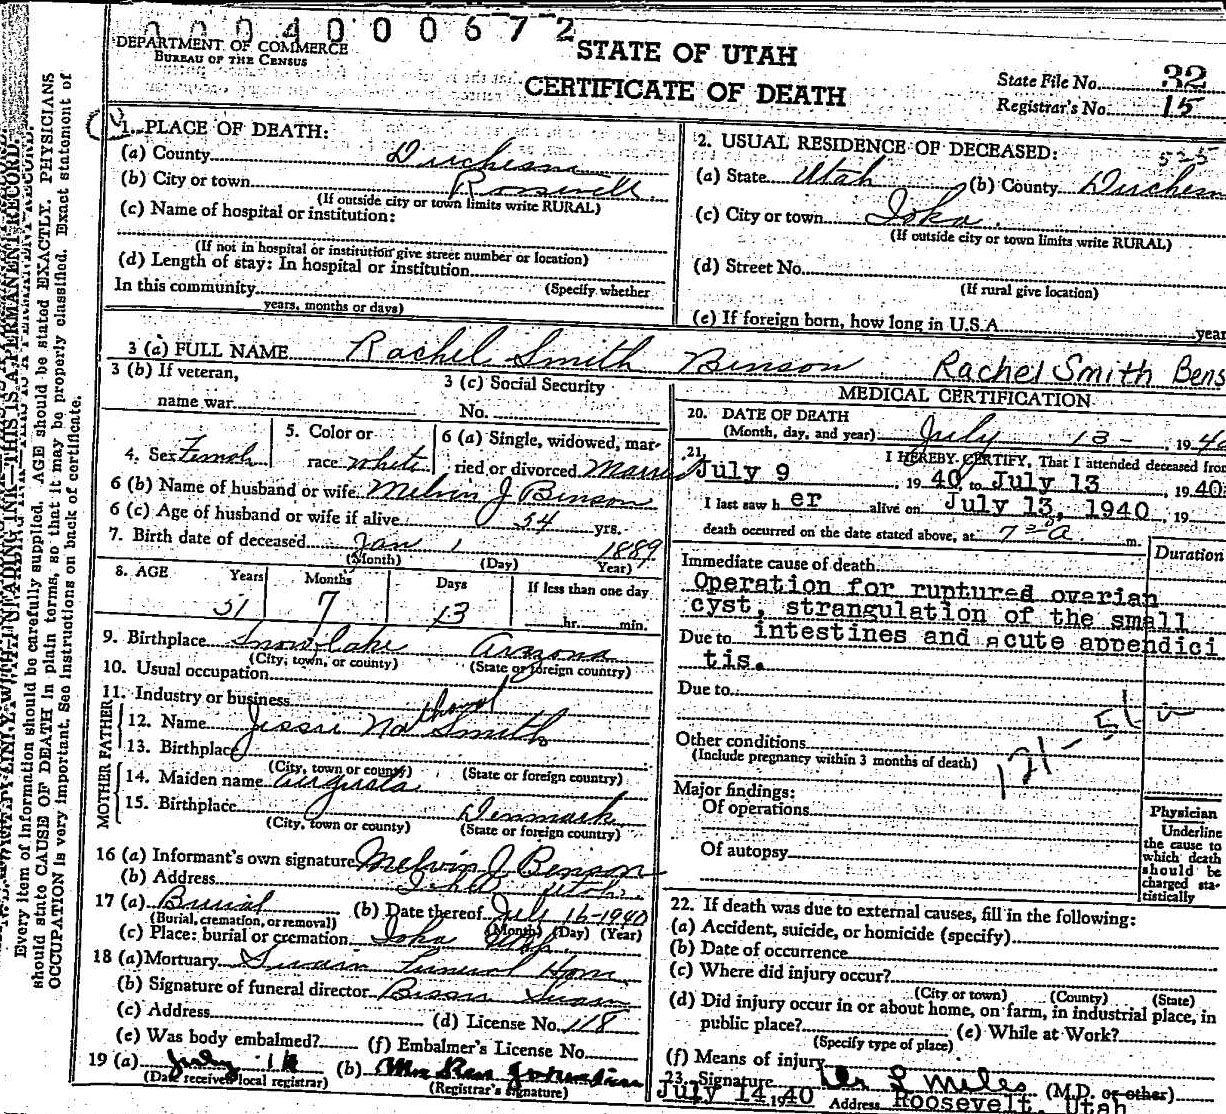 0004000672
DEPARTMENT OF COMMERCE
BUREAU OF THE CENSUS
STATE OF UTAH
CERTIFICATE OF DEATH
State File No. 32
Registrar's No. 15
1. PLACE OF DEATH:
(a) County Duchesne
(b) City or town Roosevelt
(If outside city or town limits write RURAL)
(c) Name of hospital or institution:
(If not in hospital or institution give street number or location)
(d) Length of stay: In hospital or institution
In this community (Specify whether
years, months or days)
2. USUAL RESIDENCE OF DECEASED: 525
(a) State Utah (b) County Duchesn
(c) City or town Ioka
(If outside city or town limits write RURAL)
(d) Street No.
(If rural give location)
(e) If foreign born, how long in U.S.A. year
3 (a) FULL NAME Rachel Smith Benson Rachel Smith Bens
3 (b) If veteran,
name war
3 (c) Social Security
No.
4. Sex Female
5. Color or
race white
6 (a) Single, widowed, mar-
ried or divorced Married
6 (b) Name of husband or wife Melvin J Benson
6 (c) Age of husband or wife if alive 54 yrs.
7. Birth date of deceased Jan 1 1889
(Month) (Day) Year)
8. AGE Years Months Days If less than one day
51 7 13 hr. min.
9. Birthplace Snowflake Arizona
(City, town, or county) (State or foreign country)
10. Usual occupation
11. Industry or business
FATHER
12. Name Jessie Nathanal Smith
13. Birthplace
(City, town or county) (State or foreign country)
MOTHER
14. Maiden name Augusta
15. Birthplace Denmark
(City, town or county) (State or foreign country)
16 (a) Informant's own signature Melvin J. Benson
(b) Address Ioka Utah
17 (a) Burial (b) Date thereof July 16-1940
(Burial, cremation, or removal) (Month) (Day) (Year)
(c) Place: burial or cremation Ioka Utah
18 (a) Mortuary Swain Funeral Home
(b) Signature of funeral director Swain
(c) Address (d) License No. 118
(e) Was body embalmed? (f) Embalmer's License No.
19 (a) July (b)
(Date received local registrar) (Registrar's signature)
MEDICAL CERTIFICATION
20. DATE OF DEATH
(Month, day, and year) July 13- , 1940
21. I HEREBY CERTIFY, That I attended deceased from
July 9 , 1940 to July 13 , 1940
I last saw her alive on July 13, 1940, 19
death occurred on the date stated above, at 7 30 a. m.
Duration
Immediate cause of death
Operation for ruptured ovarian
cyst, strangulation of the small
Due to intestines and acute appendici
tis.
Due to
Other conditions
(Include pregnancy within 3 months of death)
Major findings:
Of operations
Of autopsy
Physician
Underline
the cause to
which death
should be
charged sta-
tistically
22. If death was due to external causes, fill in the following:
(a) Accident, suicide, or homicide (specify)
(b) Date of occurrence
(c) Where did injury occur?
(City or town) (County) (State)
(d) Did injury occur in or about home, on farm, in industrial place, in
public place? (e) While at Work?
(Specify type of place)
(f) Means of injury
23. Signature L Miles (M.D. or other)
July 14 1940 Address Roosevelt Utah
Every item of information should be carefully supplied. AGE should be stated EXACTLY. PHYSICIANS
should state CAUSE OF DEATH in plain terms, so that it may be properly classified. Exact statement of
OCCUPATION is very important. See instructions on back of certificate.